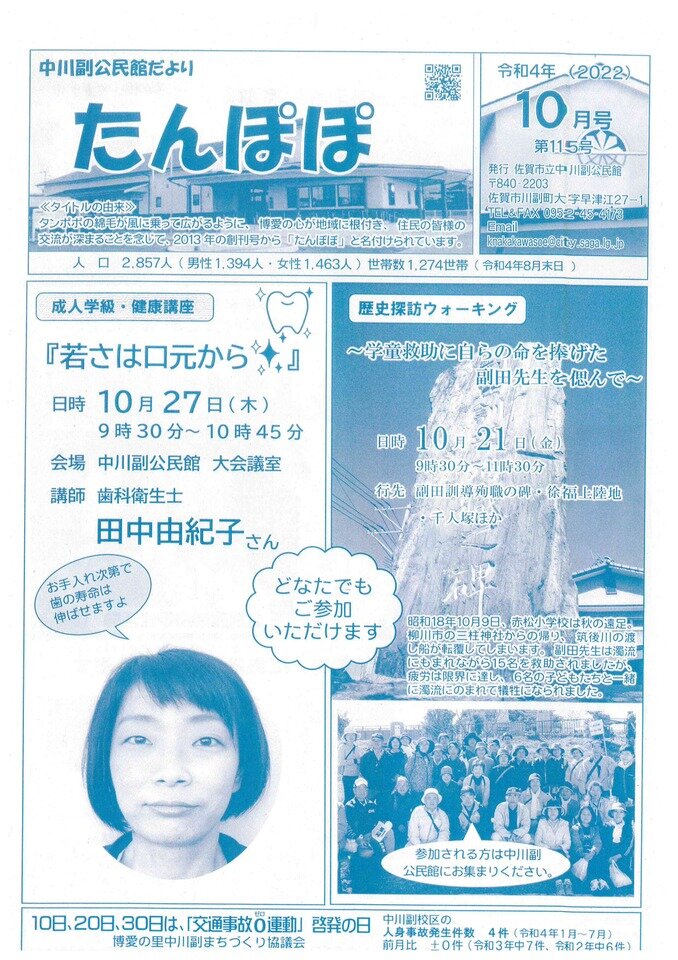 中川副公民館だより
たんぽぽ
≪タイトルの由来≫
タンポポの綿毛が風に乗って広がるように、博愛の心が地域に根付き、住民の皆様の
交流が深まることを念じて、2013年の創刊号から「たんぽぽ」と名付けられています。
令和4年 (2022)
10月号
第115号
発行 佐賀市立中川副公民館
〒840-2203
佐賀市川副町大字早津江27-1
TEL&FAX 0952-45-4173
Email
knakakawasoe@city.saga.lg.jp
人 口 2,857人(男性1,394人・女性1,463人)世帯数1,274世帯(令和4年8月末日)
成人学級・健康講座
『若さは口元から』
日時 10月27日(木)
9時30分~10時45分
会場 中川副公民館 大会議室
講師 歯科衛生士
田中由紀子さん
お手入れ次第で
歯の寿命は
伸ばせますよ
どなたでも
ご参加
いただけます
歴史探訪ウォーキング
~学童救助に自らの命を捧げた
副田先生を偲んで~
日時 10月 21日(金)
9時30分~11時30分
行先 副田訓導殉職の碑・徐福上陸地
・千人塚ほか
碑
昭和18年10月9日、赤松小学校は秋の遠足。
柳川市の三柱神社からの帰り、筑後川の渡
し船が転覆してしまいます。副田先生は濁流
にもまれながら15名を救助されましたが、
疲労は限界に達し、6名の子どもたちと一緒
に濁流にのまれて犠牲になられました。
参加される方は中川副
公民館にお集まりください。
10日、20日、30日は、「交通事故0運動」啓発の日
ゼロ
博愛の里中川副まちづくり協議会
中川副校区の
人身事故発生件数 4件(令和4年1月~7月)
前月比 ±0件(令和3年中7件、令和2年中6件)